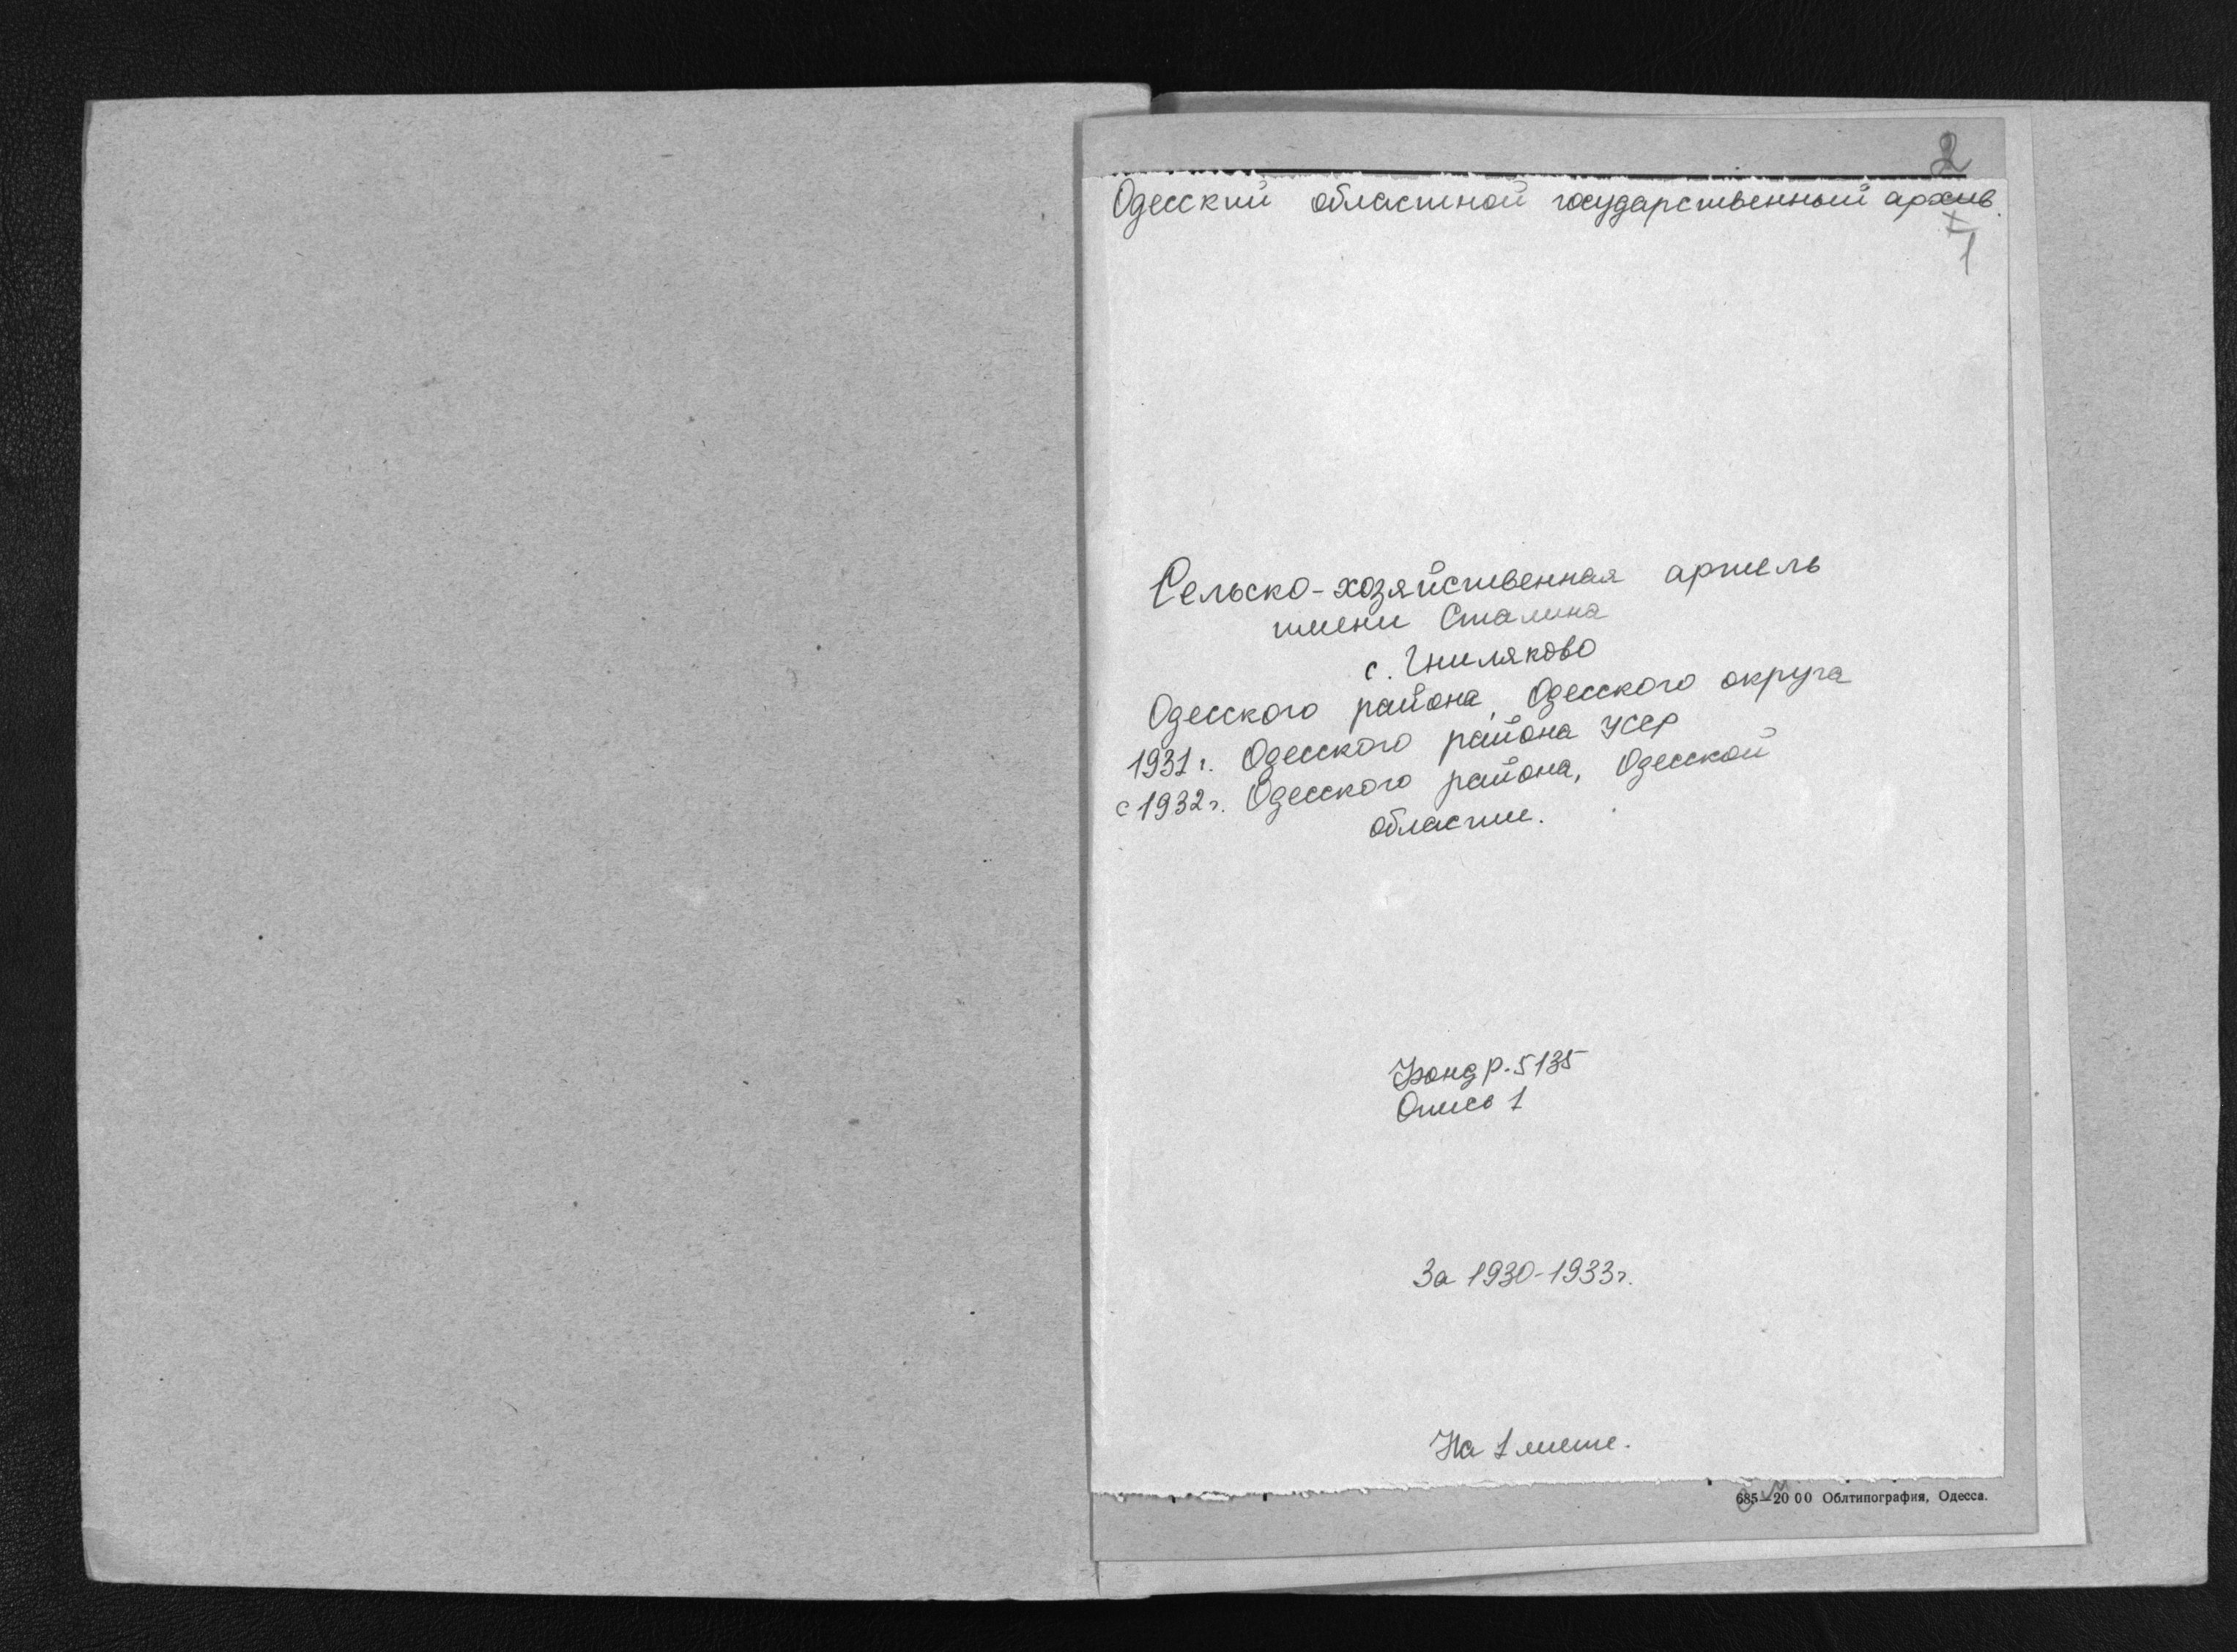 2
Одесский областной государственный архив.
1
Сельско-хозяйственная артель
имени Сталина
с. Гниляково
Одесского района, Одесского округа
1931 г. Одесского района УССР
с 1932 г. Одесского района, Одесской
области.
Фонд р. 5135
Опись 1
За 1930-1933 г.
На 1 листе.
685—20 00 Облтипография, Одесса.